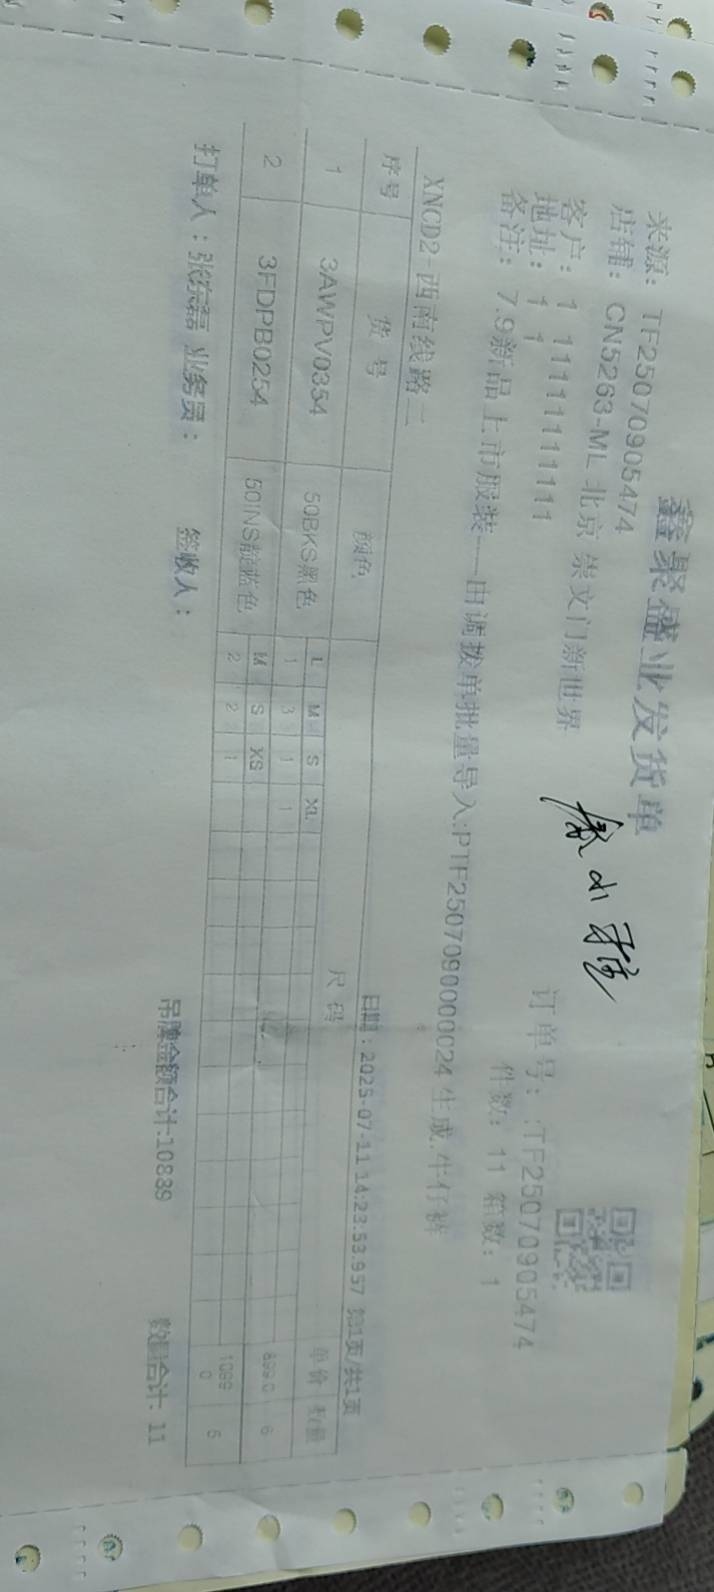 鑫聚盛业发货单
来源: TF25070905474
订单号: :TF25070905474
店铺: CN5263-ML 北京 崇文门新世界
件数: 11 箱数: 1
客户: 1 11111111111
地址: 1 1
备注: 7.9新品上市服装---由调拨单批量导入:PTF2507090000024 生成. 牛仔裤
XNCD2-西南线路二
日期: 2025-07-11 14:23:53.957 第1页/共1页
序号 货号 颜色 尺码 单价 数量
1 3AWPV0354 50BKS黑色 L M S XL 899.0 6
1 3 1 1
2 3FDPB0254 50INS靛蓝色 M S XS 1089.0 5
2 2 1
打单人: 张东磊 业务员: 签收人: 吊牌金额合计:10839 数量合计: 11